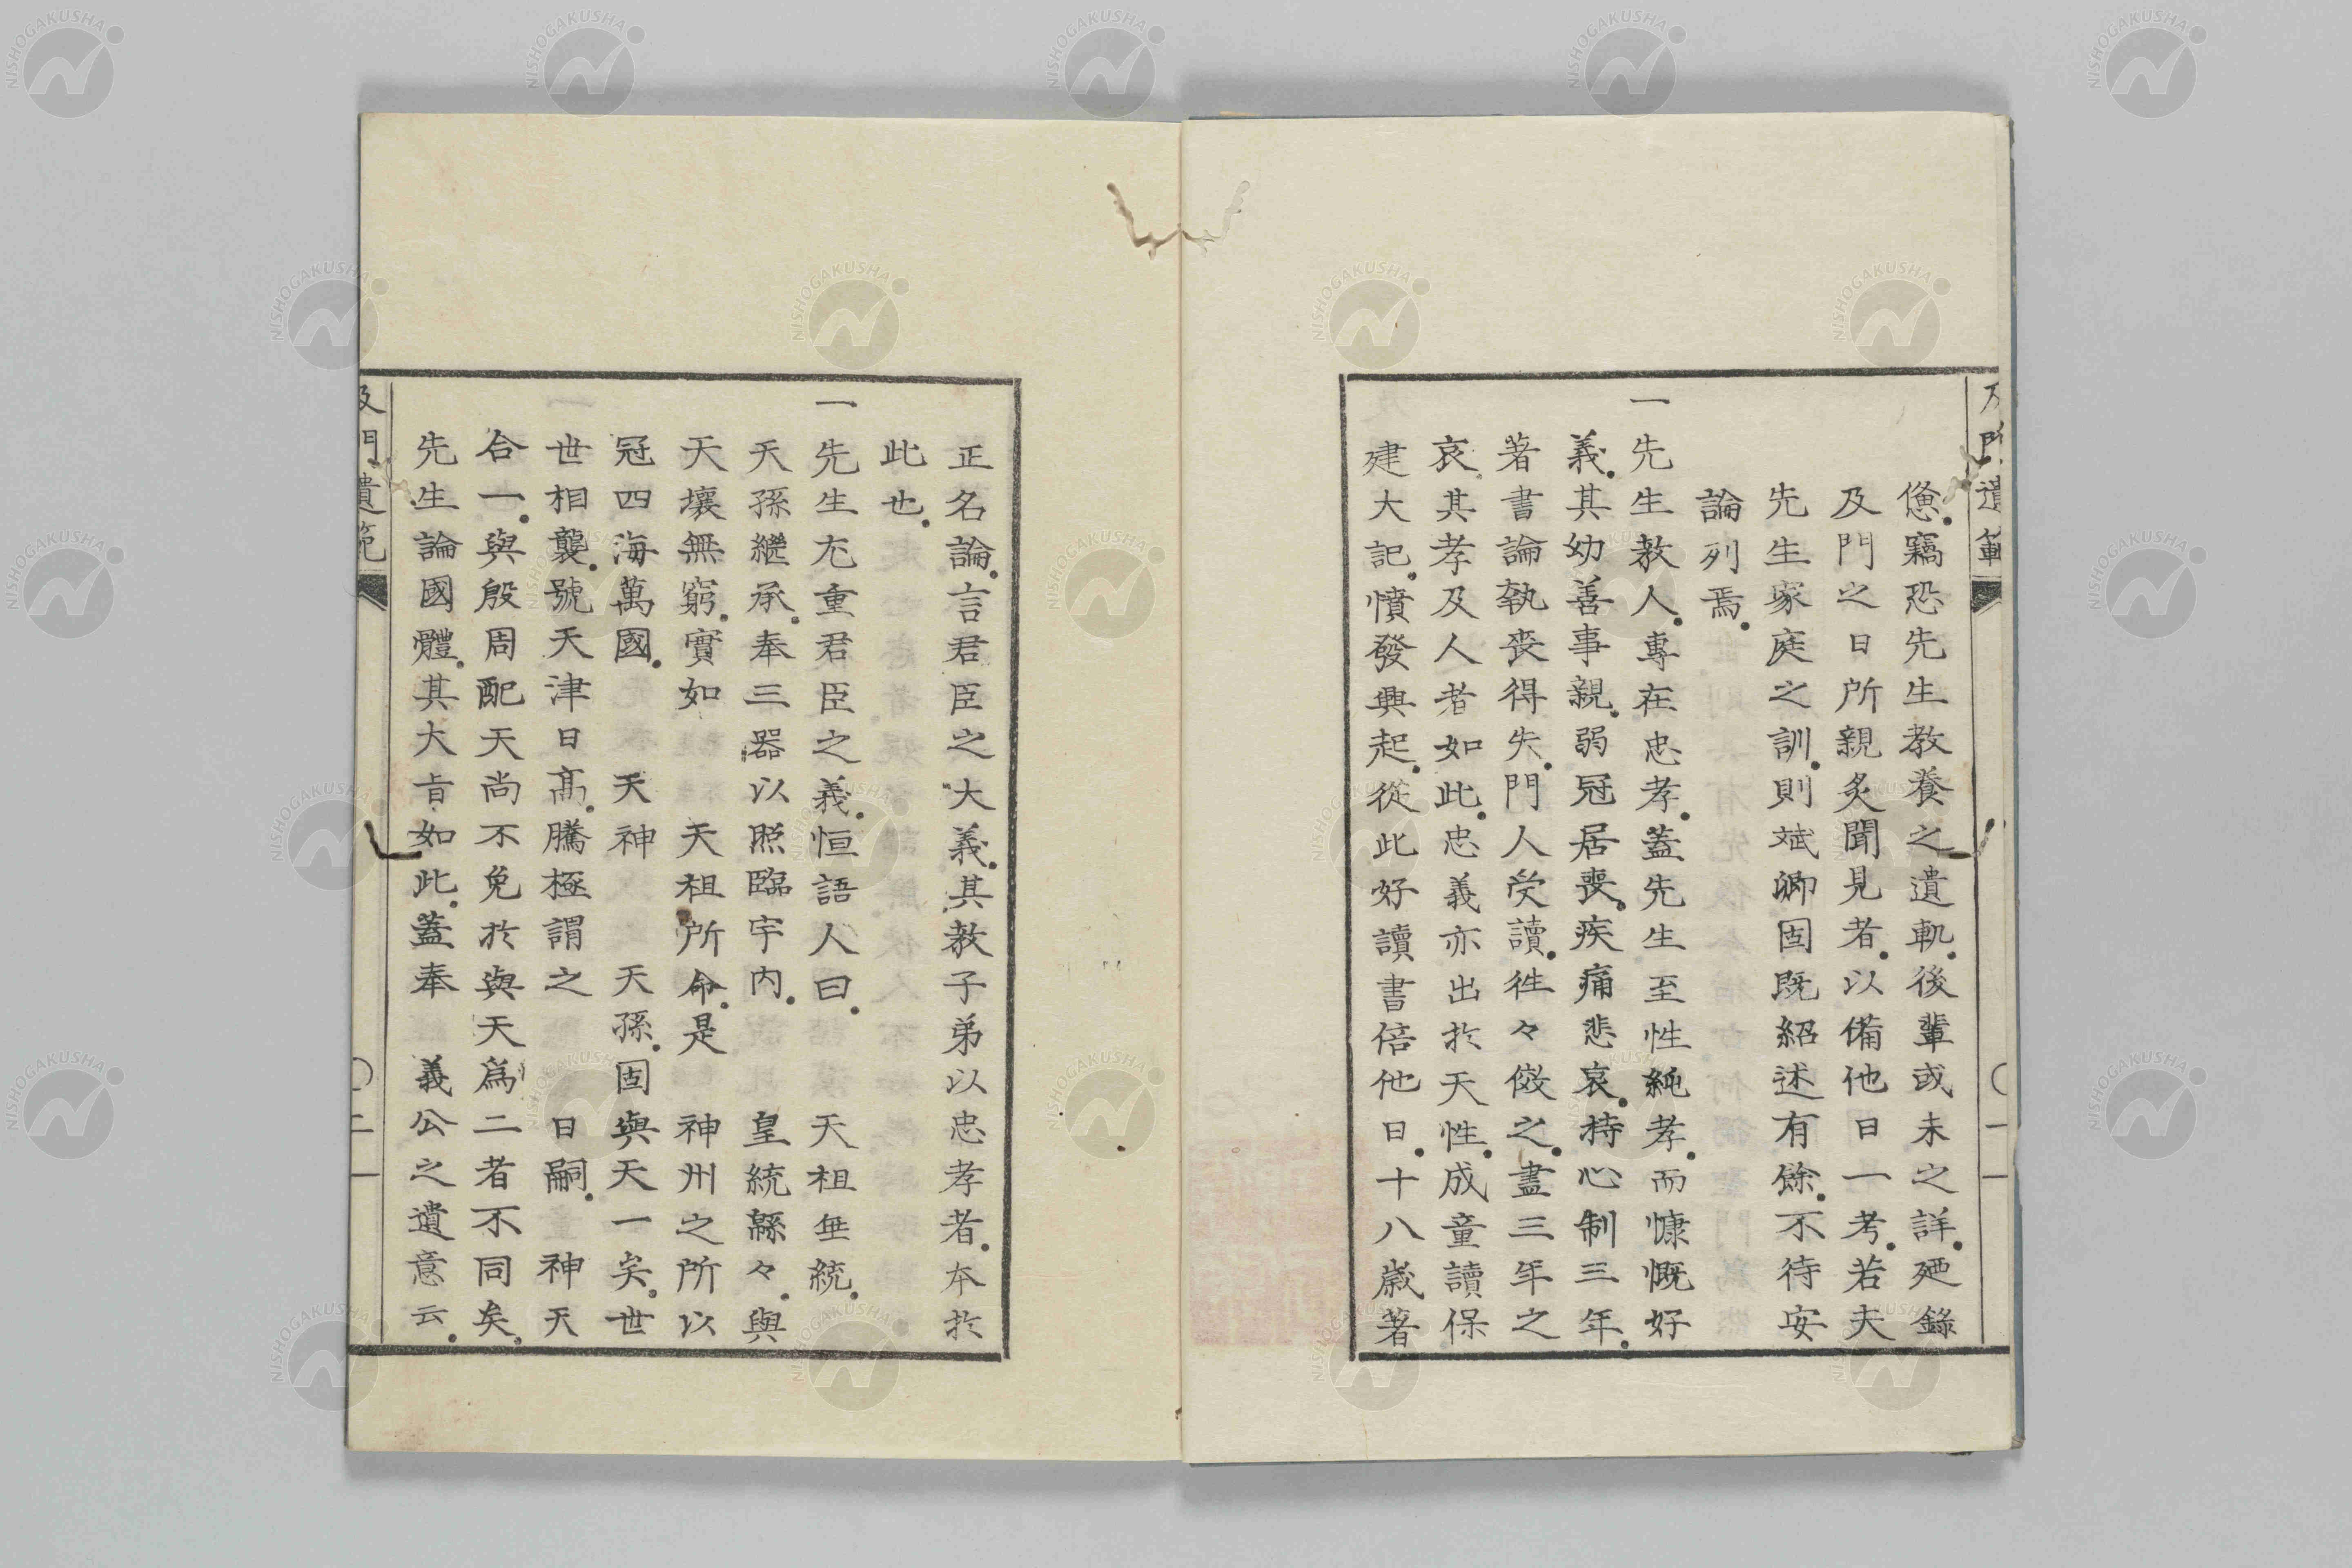 及門遺範
〇一
憊。竊恐先生教養之遺軌。後輩或未之詳。廼錄
及門之日所親炙聞見者。以備他日一考。若夫
先生家庭之訓。則斌卿固既紹述有餘。不待安
論列焉。
一先生教人。專在忠孝。蓋先生至性純孝。而慷慨好
義。其幼善事親。弱冠居喪。疾痛悲哀。持心制三年。
著書論執喪得失。門人受讀。徃々傚之。盡三年之
哀。其孝及人者如此。忠義亦出於天性。成童讀保
建大記。憤發興起。從此好讀書倍他日。十八歲著
正名論。言君臣之大義。其教子弟以忠孝者。本於
此也。
一先生尤重君臣之義。恒語人曰。天祖垂統。
天孫繼承。奉三器以照臨宇內。皇統緜々。與
天壤無窮。實如天祖所命。是神州之所以
冠四海萬國。天神天孫。固與天一矣。世
世相襲。號天津日高。騰極謂之日嗣。神天
合一。與殷周配天尚不免於與天爲二者不同矣。
先生論國體。其大旨如此。蓋奉義公之遺意云。
及門遺範
〇二
NISHOGAKUSHA